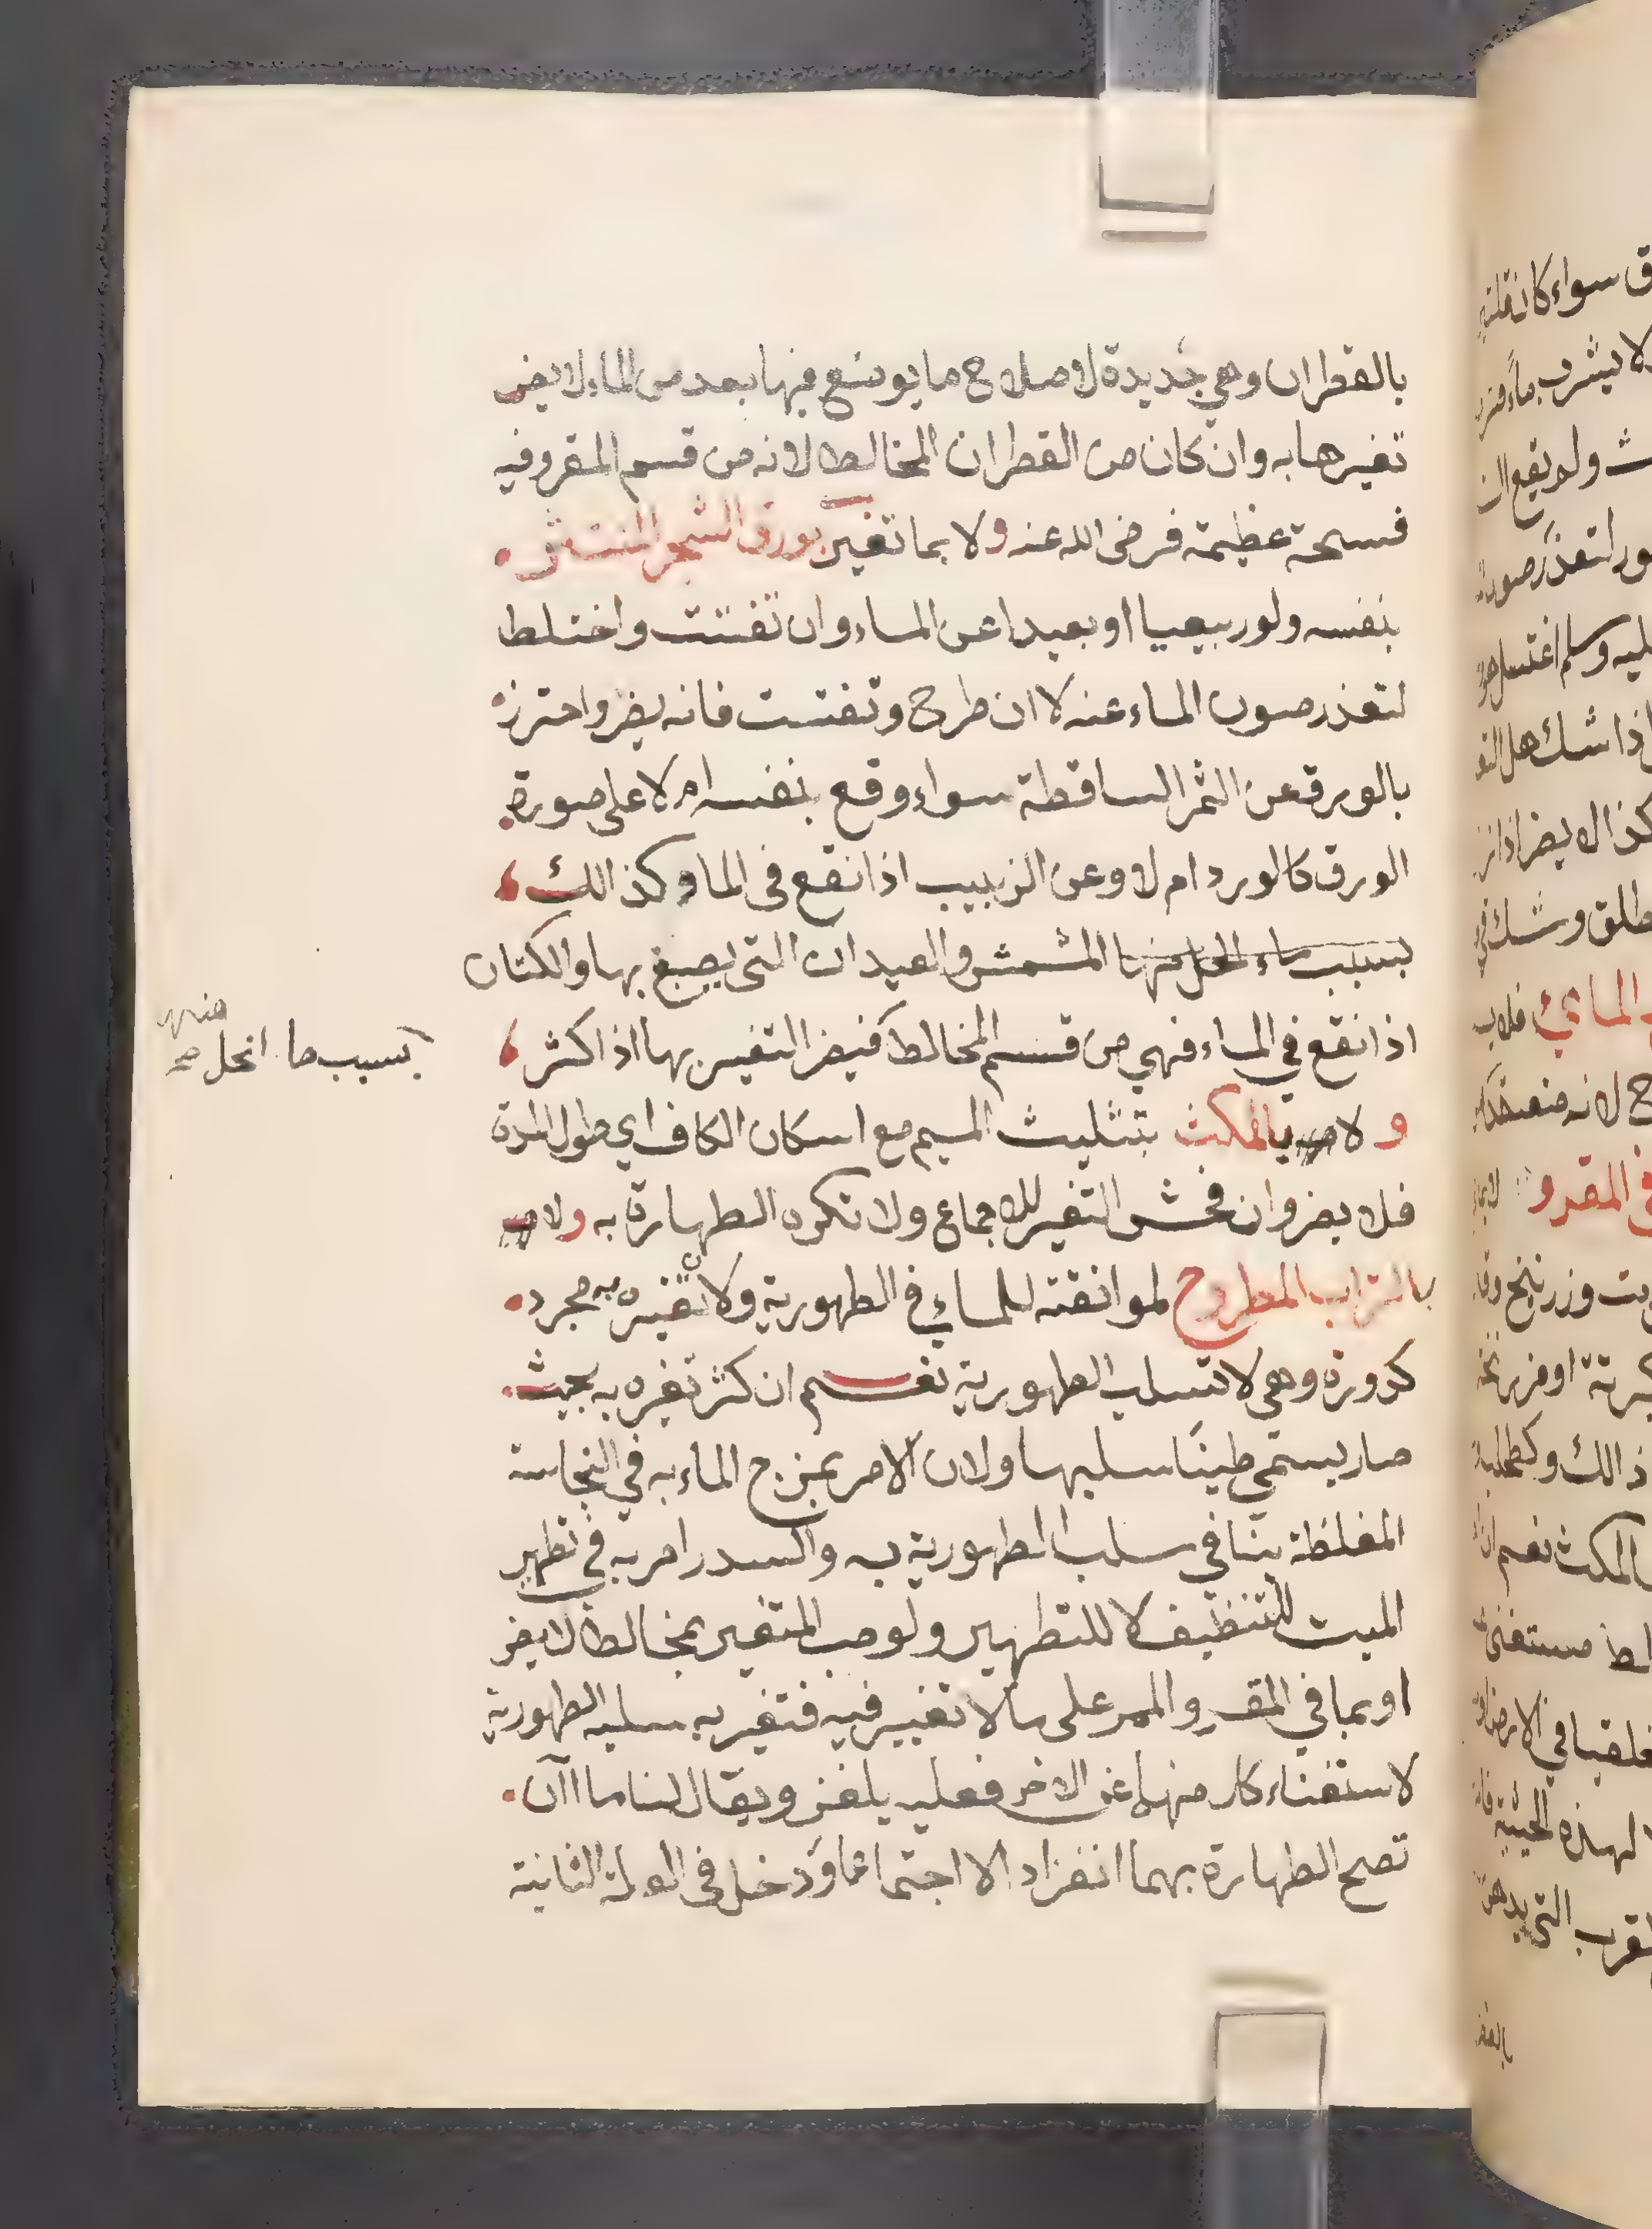 بالقطران وهي جديدة لاصلاح ما يوضع فيها بعد من الماء لا يضر
تغيرها به وان كان من القطران المخالط لانه من قسم المقر وفيه
فسحة عظيمة فرضى الله عنه ولا بما تغير بورق الشجر المنتثر
بنفسه ولو ربيعيا او بعيدا عن الماء وان تفتت واختلط
لتعذر صون الماء عنه لا ان طرح وتفتت فانه يضر واحترز
بالورق عن الثمر الساقطة سواء وقع بنفسه ام لا على صورة
الورق كالورد ام لا وعن الزبيب اذا نقع في الماء وكذالك
بسبب ماء انحل منها المشمش والعيدان التي يصبغ بها والكتان
اذا نقع في الماء فهي من قسم المخالط فيضر التغير بها اذا كثر
بسبب ما انحل منها صح
ولا بالمكث بتثليث الميم مع اسكان الكاف اي طول المدة
فلا يضر وان فحش التغير للاجماع ولا تكره الطهارة به ولا
بالتراب المطروح لموافقته للماء في الطهورية ولان تغيره به مجرد
كدورة وهي لا تسلب الطهورية نعم ان كثر تغيره به بحيث
صار يسمى طينًا سلبها ولان الامر بمزج الماء به في النجاسة
المغلظة ينافي سلب الطهورية به والسدر امر به في تطهير
الميت للتنظيف لا للتطهير ولو صب المتغير بمخالط لا يضر
او بما في المقر والممر على ما لا تغير فيه فتغير به سلبه الطهورية
لاستغناء كل منهما عن الاخر فعليه يلغز ويقال لنا ماآان
تصح الطهارة بهما انفرادا لا اجتماعا ودخل في العلة الثانية